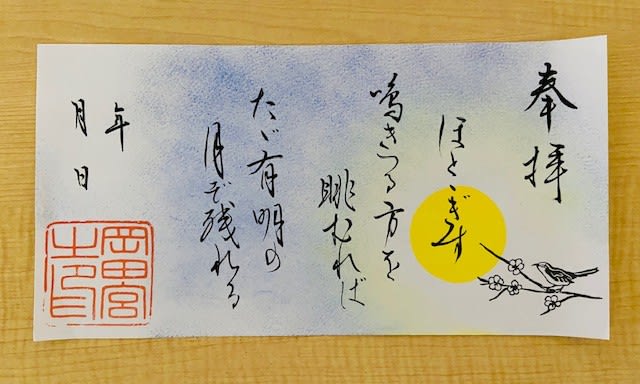 奉拝
ほとゝぎす
鳴きつる方を
眺むれば
たゞ有明の
月ぞ残れる
年
月 日
岡田宮
之印